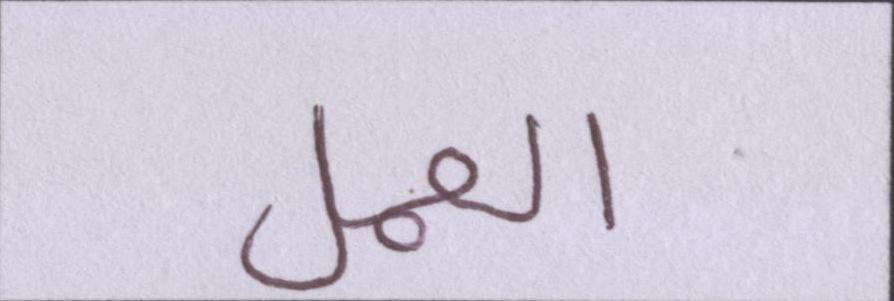 العمل